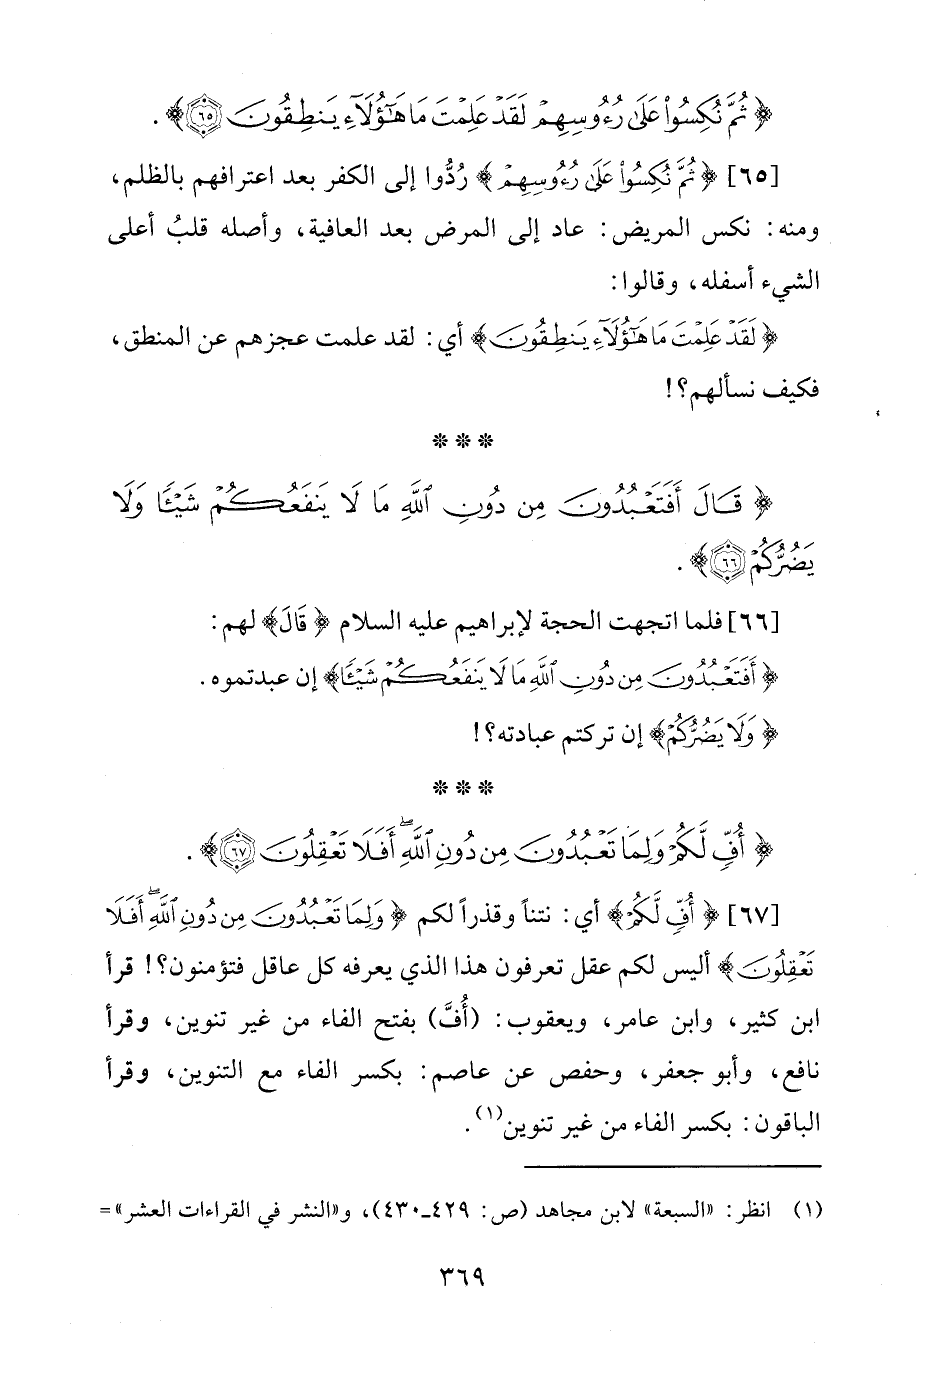 ﴿ ثُمَّ نُكِسُوا۟ عَلَىٰ رُءُوسِهِمْ لَقَدْ عَلِمْتَ مَا هَٰٓؤُلَآءِ يَنطِقُونَ ٦٥﴾ .
[٦٥] ﴿ ثُمَّ نُكِسُوا۟ عَلَىٰ رُءُوسِهِمْ﴾ رُدُّوا إلى الكفر بعد اعترافهم بالظلم،
ومنه: نكس المريض: عاد إلى المرض بعد العافية، وأصله قلبُ أعلى
الشيء أسفله، وقالوا:
﴿ لَقَدْ عَلِمْتَ مَا هَٰٓؤُلَآءِ يَنطِقُونَ﴾ أي: لقد علمت عجزهم عن المنطق،
فكيف نسألهم؟!
* * *
﴿ قَالَ أَفَتَعْبُدُونَ مِن دُونِ ٱللَّهِ مَا لَا يَنفَعُكُمْ شَيْـًٔا وَلَا
يَضُرُّكُمْ ٦٦﴾ .
[٦٦] فلما اتجهت الحجة لإبراهيم عليه السلام ﴿ قَالَ﴾ لهم:
﴿ أَفَتَعْبُدُونَ مِن دُونِ ٱللَّهِ مَا لَا يَنفَعُكُمْ شَيْـًٔا﴾ إن عبدتموه.
﴿ وَلَا يَضُرُّكُمْ﴾ إن تركتم عبادته؟!
* * *
﴿ أُفٍّ لَّكُمْ وَلِمَا تَعْبُدُونَ مِن دُونِ ٱللَّهِ ۖ أَفَلَا تَعْقِلُونَ ٦٧﴾ .
[٦٧] ﴿ أُفٍّ لَّكُمْ﴾ أي: نتناً وقذراً لكم ﴿ وَلِمَا تَعْبُدُونَ مِن دُونِ ٱللَّهِ ۖ أَفَلَا
تَعْقِلُونَ﴾ أليس لكم عقل تعرفون هذا الذي يعرفه كل عاقل فتؤمنون؟! قرأ
ابن كثير، وابن عامر، ويعقوب: (أُفَّ) بفتح الفاء من غير تنوين، وقرأ
نافع، وأبو جعفر، وحفص عن عاصم: بكسر الفاء مع التنوين، وقرأ
الباقون: بكسر الفاء من غير تنوين(١).
(١) انظر: «السبعة» لابن مجاهد (ص: ٤٢٩-٤٣٠)، و«النشر في القراءات العشر»=
٣٦٩